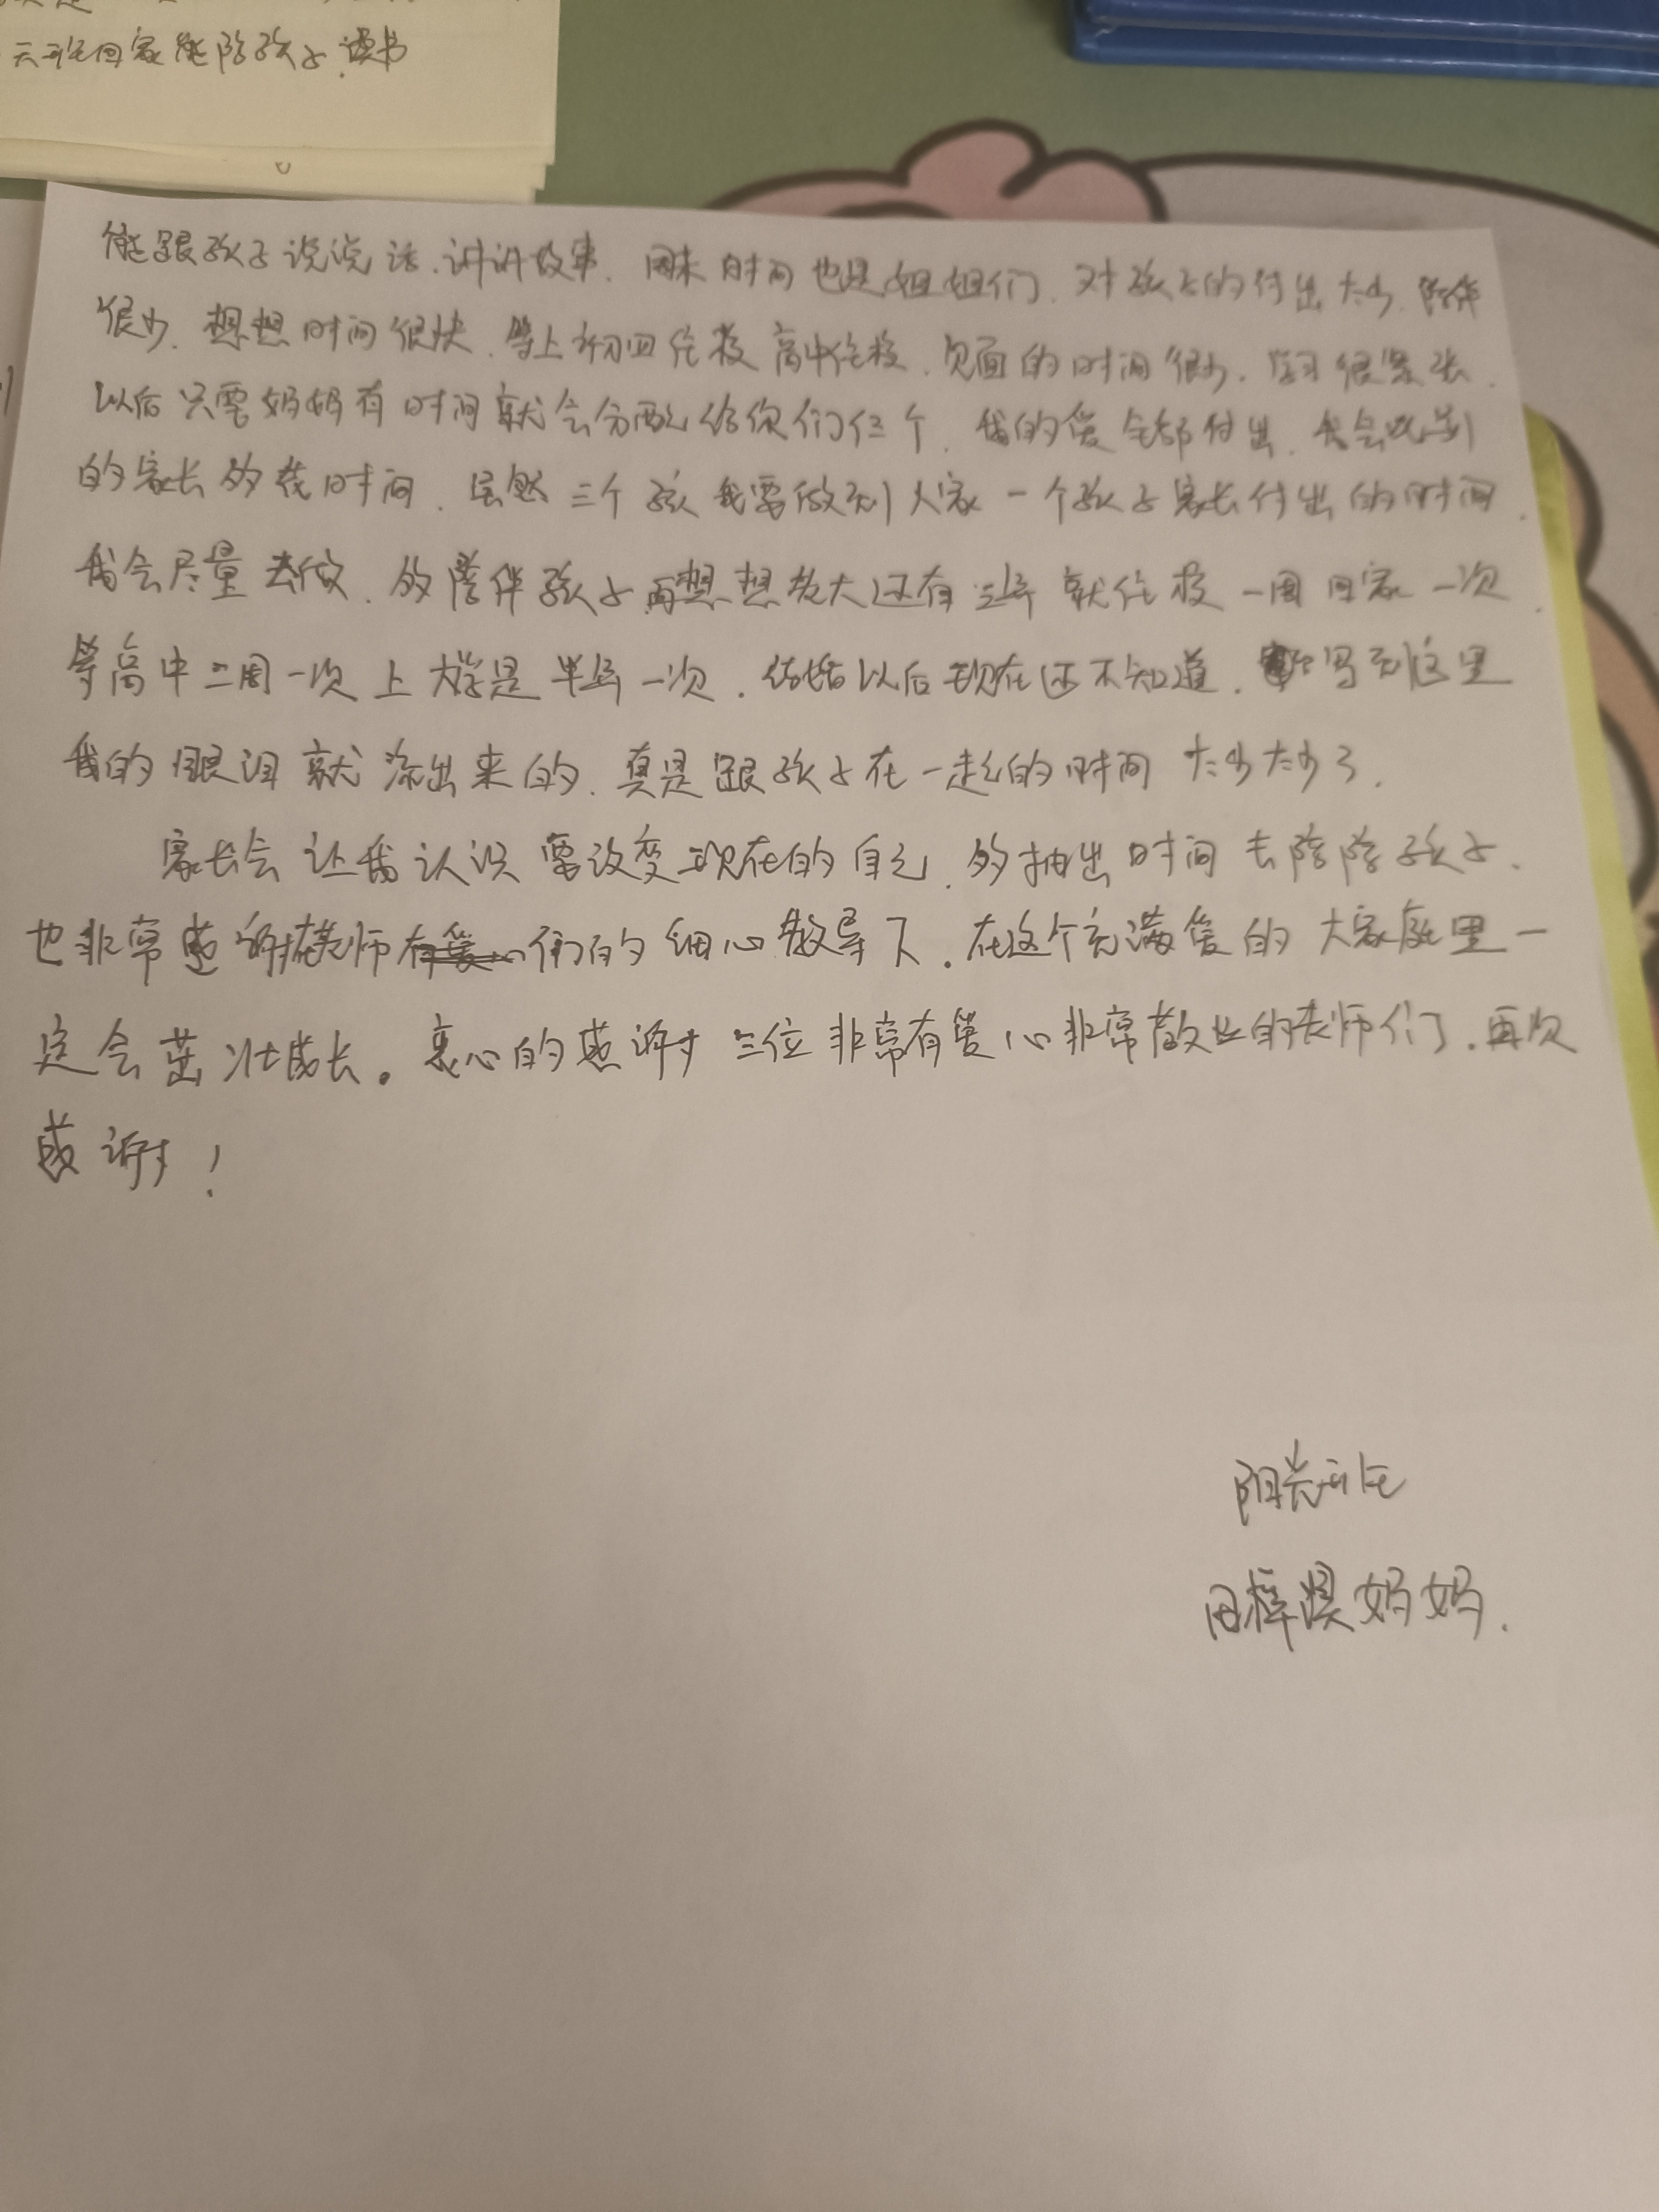 天班回家能陪孩子读书
能跟孩子说说话.讲讲故事.周末时间也是姐姐们.对孩子的付出太少.陪伴
很少.想想时间很快.等上初四住校高中住校.见面的时间很少.学习很紧张.
以后只要妈妈有时间就会分配给你们仨个.我的爱全部付出.我会比别
的家长多花时间.虽然三个孩我要做到人家一个孩子家长付出的时间.
我会尽量去做.多陪伴孩子再想想老大还有三年就住校一周回家一次.
等高中二周一次上大学是半年一次.结婚以后现在还不知道.写到这里
我的眼泪就流出来的.真是跟孩子在一起的时间太少太少了.
家长会让我认识要改变现在的自己.多抽出时间去陪陪孩子.
也非常感谢老师们的细心教导下.在这个充满爱的大家庭里一
定会茁壮成长。衷心的感谢三位非常有爱心非常敬业的老师们.再次
感谢!
阳光
田梓 妈妈.